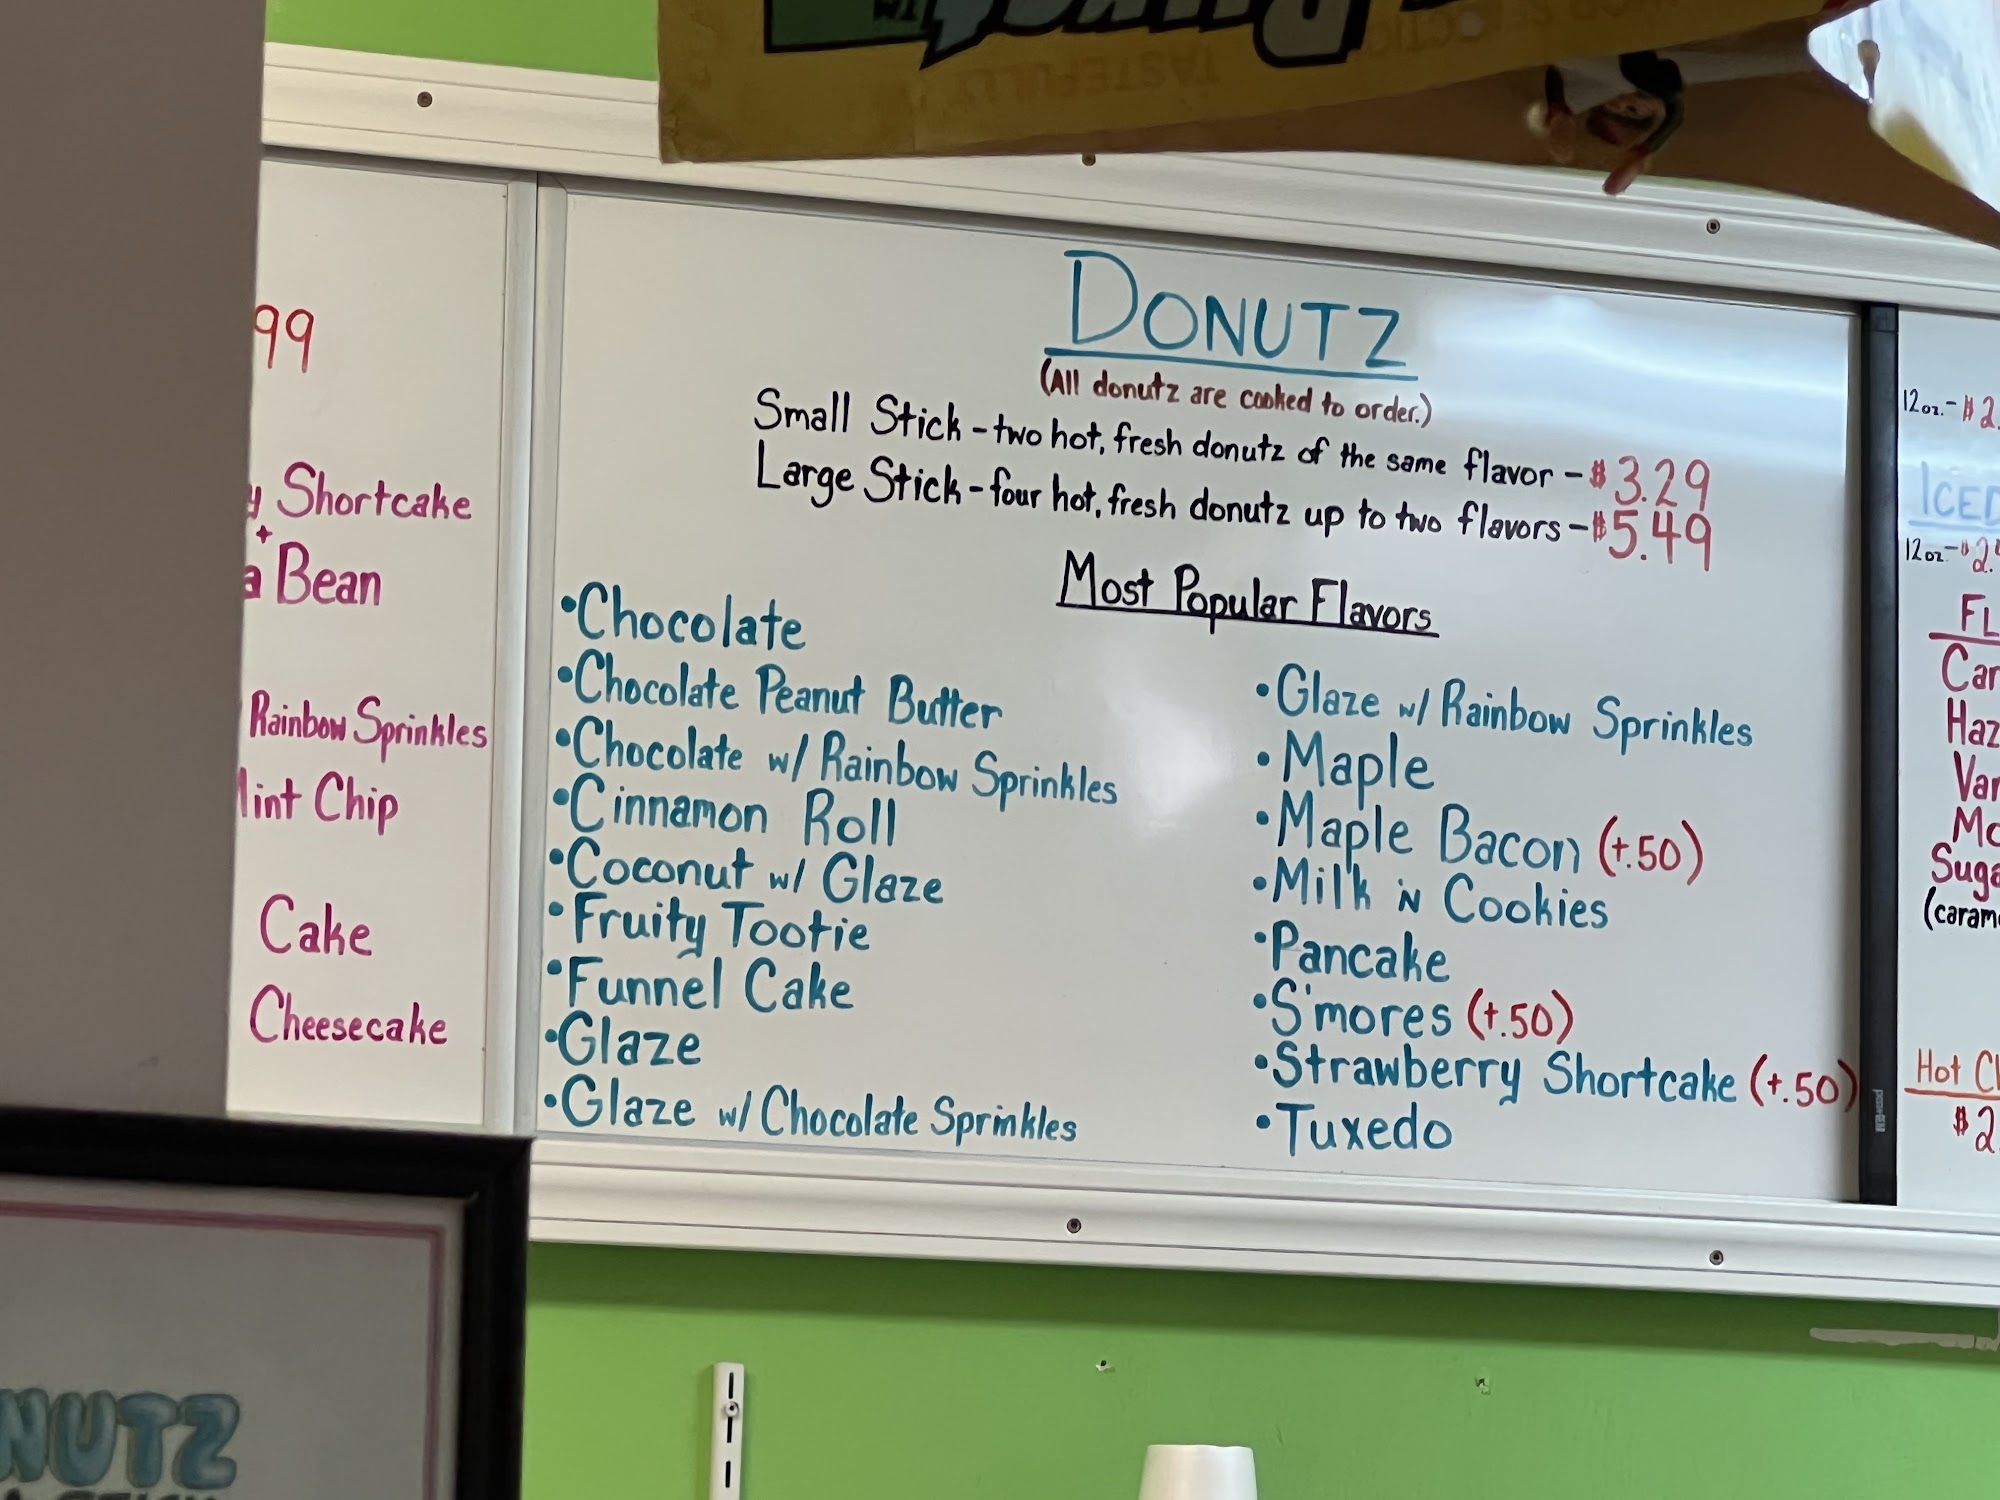 TASTEFULLY
99
Shortcake
+
Bean
Rainbow Sprinkles
int Chip
Cake
Cheesecake
DONUTZ
(All donutz are cooked to order.)
Small Stick - two hot, fresh donutz of the same flavor - $3.29
Large Stick - four hot, fresh donutz up to two flavors - $5.49
Most Popular Flavors
•Chocolate
•Chocolate Peanut Butter
•Chocolate w/ Rainbow Sprinkles
•Cinnamon Roll
•Coconut w/ Glaze
•Fruity Tootie
•Funnel Cake
•Glaze
•Glaze w/ Chocolate Sprinkles
•Glaze w/ Rainbow Sprinkles
•Maple
•Maple Bacon (+.50)
•Milk 'N Cookies
•Pancake
•S'mores (+.50)
•Strawberry Shortcake (+.50)
•Tuxedo
12oz.- $2.
ICED
12oz- $2.
FL
Car
Haz
Van
Mo
Suga
(caram
Hot Ch
$2
NUTZ